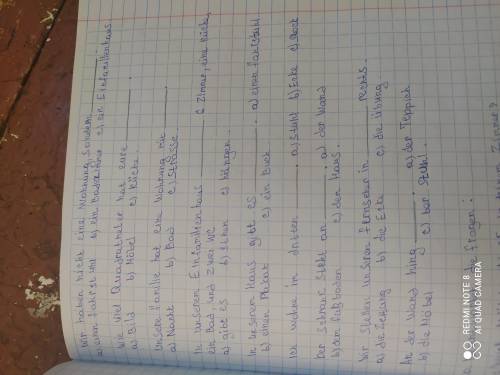 Wir haben nicht eine Wohnung, sondern
einen Fahrstuhl b) ein Badezimmer c) ein Einfamilienhaus
Wie viel Quadratmeter hat eure
a) Bild b) Möbel c) Küche
Unsere Familie hat eine Wohnung mit
a) Nacht b) Bad c) Strasse
In unserem Einfamilienhaus 6 Zimmer, eine Küche,
ein Bad und zwei WC
a) gibt es b) stehen c) hängen
In unserem Haus gibt es a) einen Fahrstuhl
b) einen Plakat c) ein Buch
Ich wohne im dritten a) Stuhl b) Ecke c) Stock
Der Schrank steht an a) der Wand
b) dem Fußboden c) dem Haus
Wir stellen unseren Fernseher in rechts
a) die Zeitung b) die Ecke c) die Übung
An der Wand hing a) der Teppich
b) die Möbel c) der Stuhl
die Fragen:
Zimmer?
REDMI NOTE 8
AI QUAD CAMERA